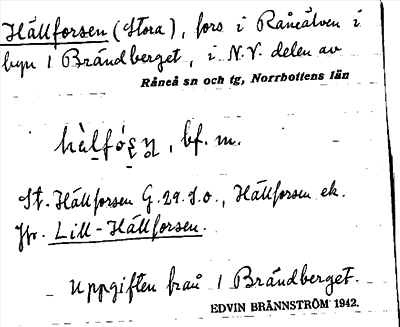 Hällforsen (Stora), fors i Råneälven i
byn 1 Brändberget, i N.V. delen av
Råneå sn och tg, Norrbottens län
hälfó̱ṣn̥, bf. m.
St. Hällforsen G.29.S.o., Hällforsen ek.
Jfr. Lill-Hällforsen.
Uppgiften från 1 Brändberget.
EDVIN BRÄNNSTRÖM 1942.